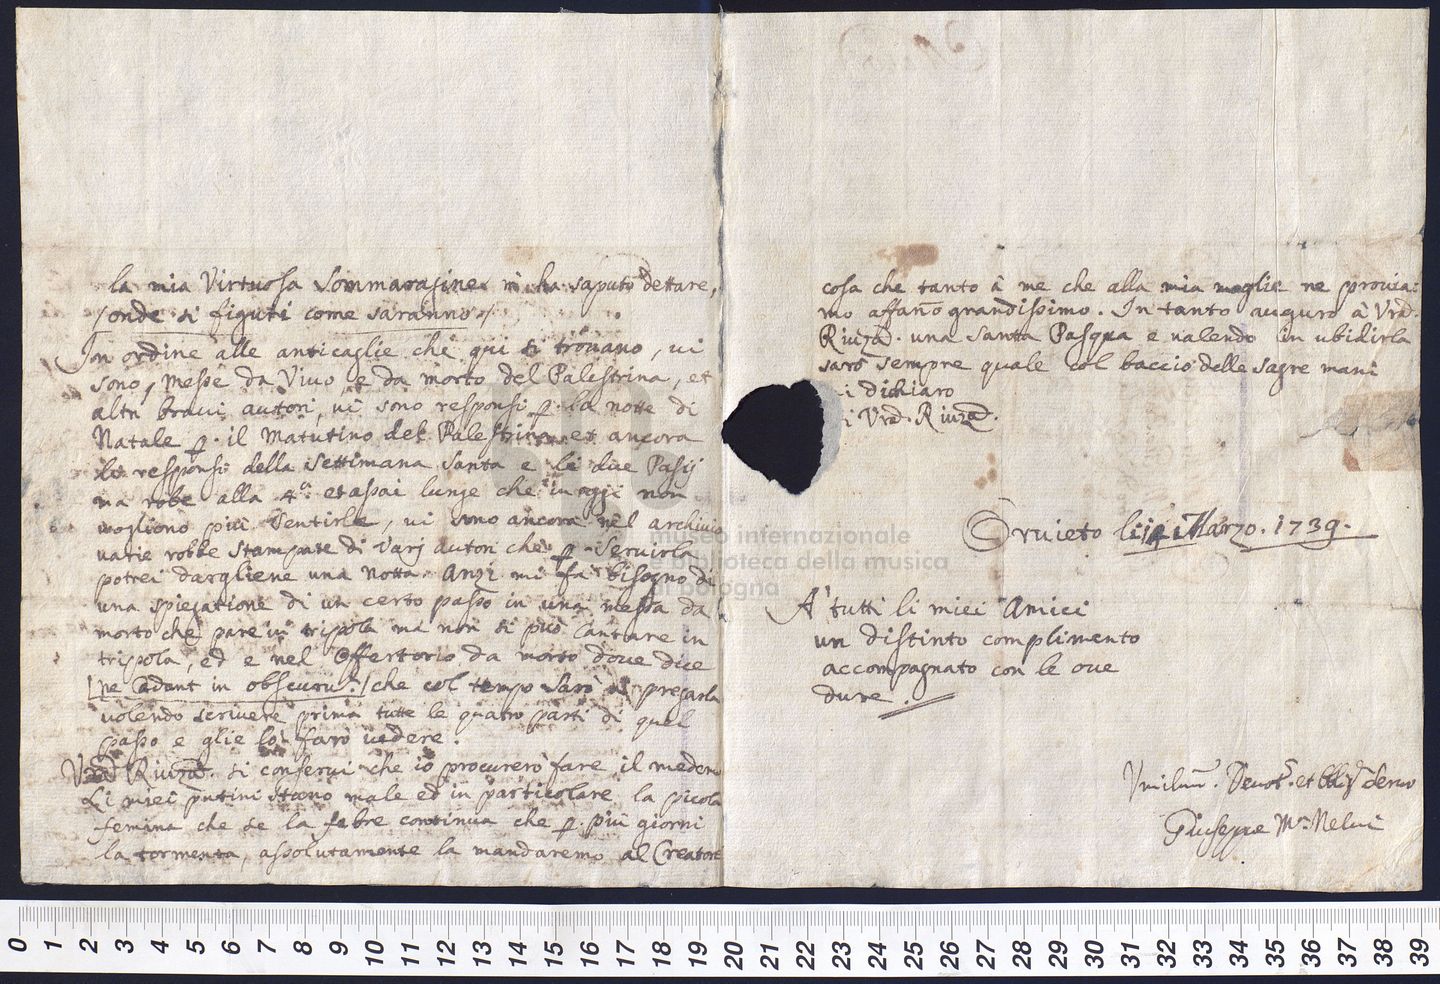 la mia Virtuosa Sommarasine mi ha saputo dettare,
/onde si figuri come saranno/
In ordine alle anticaglie che qui si trovano, vi
sono, Messe da Vivo e da morto del Palestrina, et
altri bravi autori, vi sono responsi p. la notte di
Natale p. il Matutino del Palestrina et ancora
li responsi della settimana santa e li due Pasij
ma robe alla 4a. et assai lunge che in oggi non
vogliono più sentirle, vi sono ancora nel archivio
varie robbe stampate di varj autori che p. servirla
potrei dargliene una notta. Anzi mi fa bisogno di
una spiegatione di un certo passo in una messa da
morto che pare in trispola ma non si può cantare in
trispola, ed e nel Offertorio da morto dove dice
/ne cadant in obscurũ:/ che col tempo sarò a pregarla
volendo scrivere prima tutte le quatro parti di quel
passo e glie lo farò vedere.
Vrã Riuzã. si conservi che io procurerò fare il medemo
Li miei puttini stanno male ed in particolare la picola
femina che se la febre continua che p. più giorni
la tormenta, assolutamente la mandaremo al Creatore
cosa che tanto à me che alla mia moglie ne provia:
mo affano grandissimo. In tanto auguro à Vrã.
Riuzã. una santa Pasqua e valendo in ubidirla
sarò sempre quale col baccio delle sagre mani
i dichiaro
i Vrã. Riuzã.
Orvieto li Marzo. 1739.
A' tutti li miei Amici
un distinto complimento
accompagnato con le ove
dure.
Vmilmo. Devotmo. et Obligmo servo
Giuseppe Ma. Nelvi
museo internazionale
e biblioteca della musica
di bologna
0 1 2 3 4 5 6 7 8 9 10 11 12 13 14 15 16 17 18 19 20 21 22 23 24 25 26 27 28 29 30 31 32 33 34 35 36 37 38 39